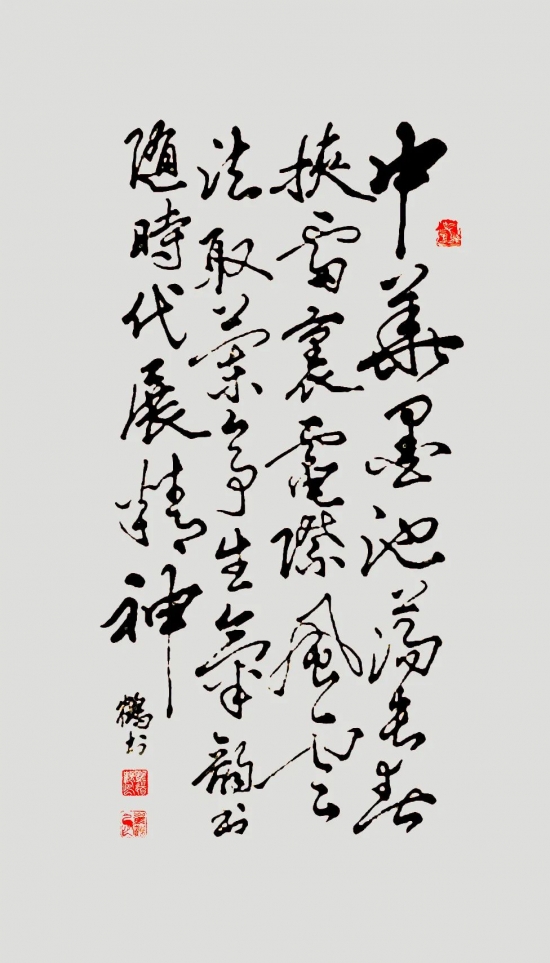 中華墨池蕩長春
挾雷裹電際風雲
法取蘭亭生氣韻書
隨時代展精神
鶴書